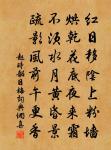 紅日移陰上粉墻
烘乾花底夜來霜
不須水月昏黃景
疏影風前午更香
趙時韶日梅詞典網書